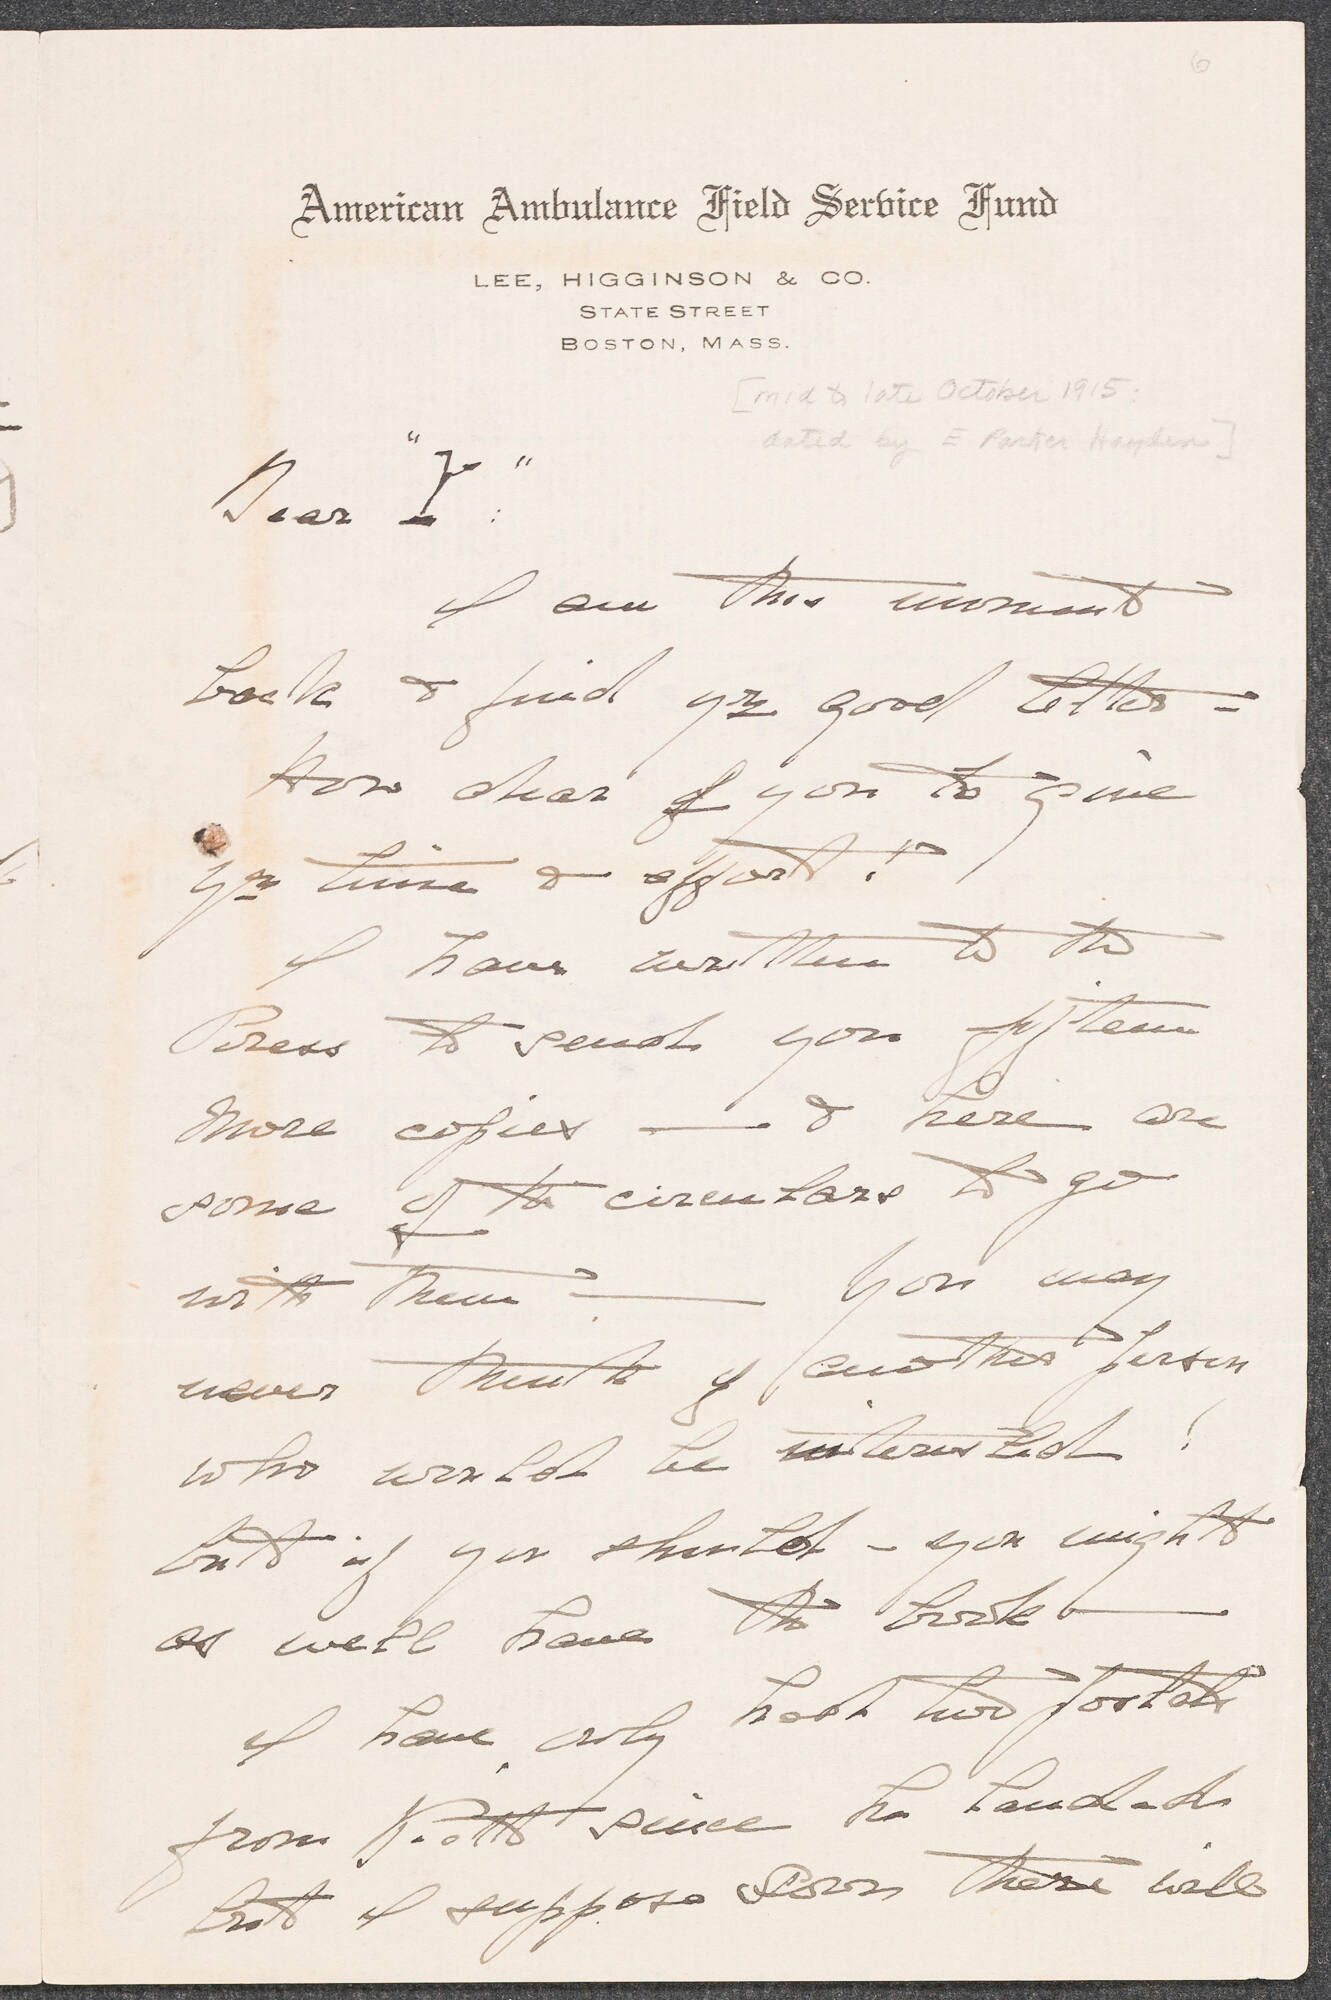 6
American Ambulance Field Service Fund
LEE, HIGGINSON & CO.
STATE STREET
BOSTON, MASS.
[mid to late October 1915:
dated by E Parker Hayden]
Dear "Y":
I am this moment
back & find yr good letter -
How dear of you to give
yr time & effort!
I have written to the
Press to send you fifteen
more copies — & here are
some of the circulars to go
with them — You may
never think of another person
who would be interested!
but if you should - you might
as well have the book —
I have only had two postals
from Piatt since he landed
but I suppose soon there will